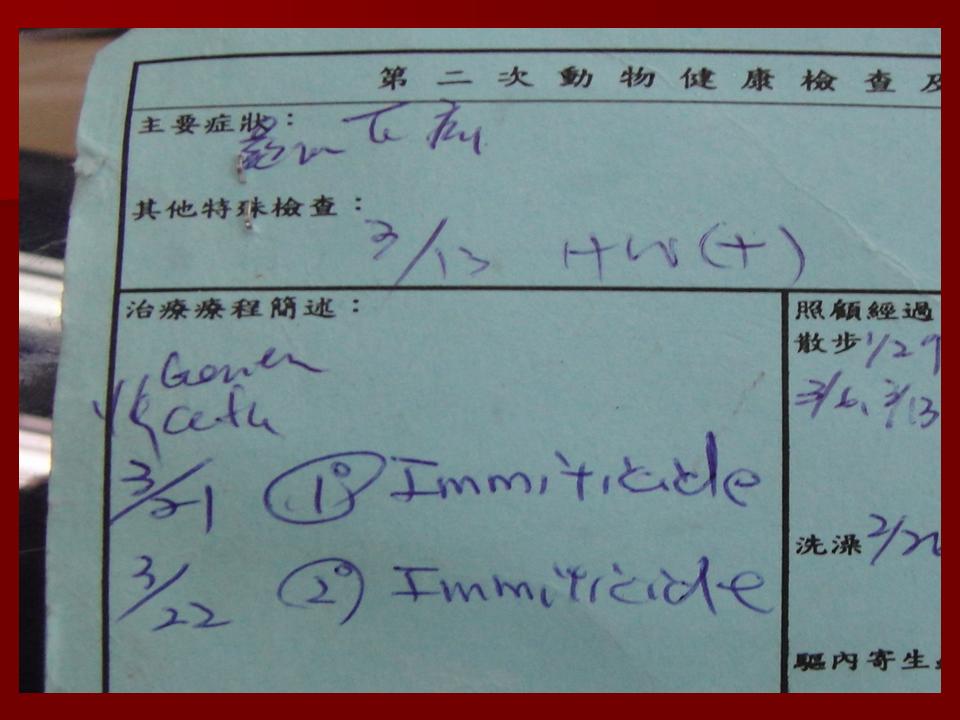 第二次動物健康檢查及
主要症狀：
其他特殊檢查：
3/13 HW(+)
治療療程簡述：
照顧經過
散步 1/29
3/6, 3/13
3/21 ① Immiticide
洗澡 2/26
3/22 ② Immiticide
驅內寄生